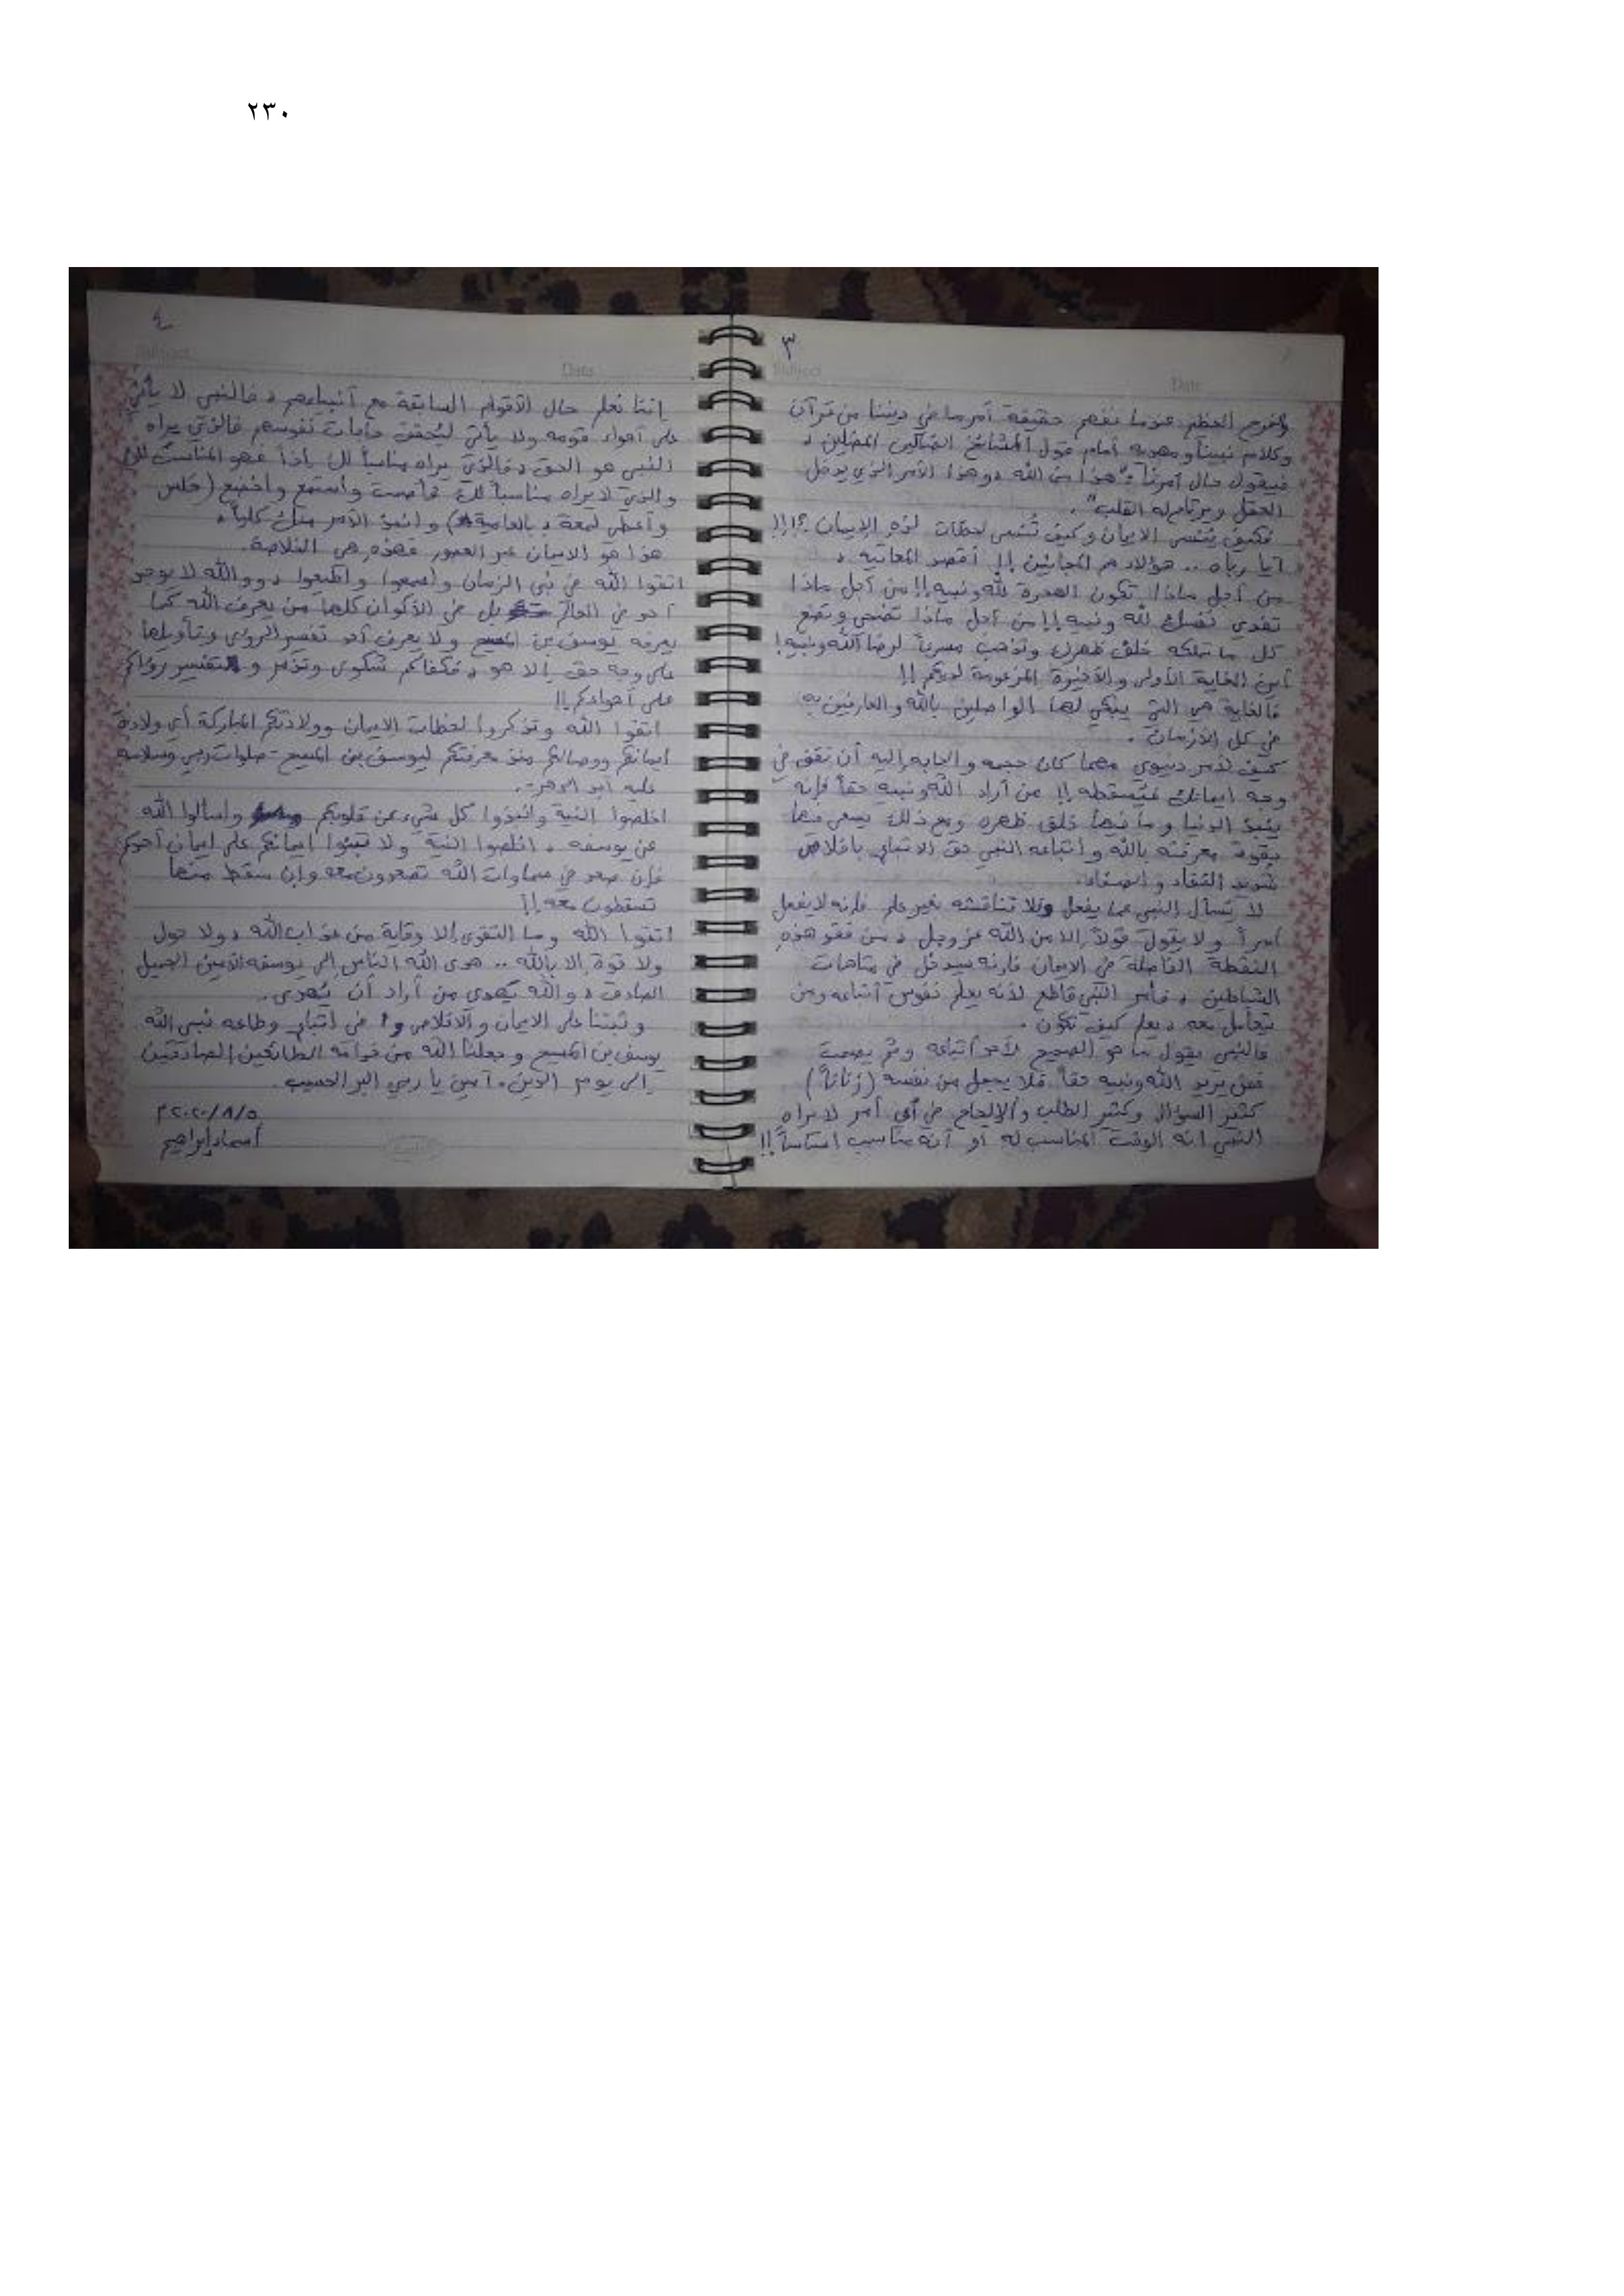 ٢٣٠
٣
Subject
Date
والفرح العظيم عندما نفهم حقيقة أمر ما في ديننا من قرآن
وكلام نبينا ومهديه أمام قول المشائخ الضالين المضلين ،
فيقول حال أمرنا : "هذا من الله ، وهذا الأمر الذي يدخل
العقل ويرتاح له القلب" .
فكيف يُنسى الإيمان وكيف تُنسى لحظات لذة الإيمان ؟!!!
أيا رباه .. هؤلاء هم المجانين !! أقصد
من أجل ماذا تكون الهجرة لله ونبيه !! من أجل ماذا
تفدي نفسك لله ونبيه !! من أجل ماذا تضحي وتضع
كل ما تملكه خلف ظهرك وتذهب مسرعاً لرضا الله ونبيه !
أين الغاية الأولى والأخيرة المزعومة لديكم !!
فالغاية هي التي يبكي لها الواصلين بالله والعارفين به
في كل الأزمان .
كيف لأمر دنيوي مهما كان حجمه والحاجة إليه أن تقف في
وجه إيمانك فيسقطه !! من أراد الله ونبيه حقاً فإنه
ينبذ الدنيا وما فيها خلف ظهره ومع ذلك يسعى فيها
بقوة معرفته بالله واتباعه النبي حق الاتباع باخلاص
شديد النقاء والصفاء.
لا تسأل النبي عما يفعل ولا تناقشه بغير علم فإنه لا يفعل
أمراً ولا يقول قولاً إلا من الله عز وجل ، من فقد هذه
النقطة الفاصلة في الإيمان فإنه سيدخل في متاهات
الشياطين ، فأمر النبي قاطع لأنه يعلم نفوس أتباعه ومن
يتعامل معه ، يعلم كيف تكون .
فالنبي يقول ما هو الصحيح لأحد أتباعه وثم يصمت
فمن يريد الله ونبيه حقاً فلا يجعل من نفسه (زناناً)
كثير السؤال وكثير الطلب والإلحاح في أي أمر لا يراه
النبي انه الوقت المناسب له أو أنه مناسب أساساً !!
٤
Subject
Date
إننا نعلم حال الأقوام السابقة مع أنبياءهم ، فالنبي لا يأتي
على أهواء قومه ولا يأتي ليُحقق حاجات نفوسهم فالذي يراه
النبي هو الحق ، فالذي يراه مناسباً لك إذاً فهو المناسب لك
والذي لا يراه مناسباً لك فاصمت واستمع واخضع (خلص
وأعطي لمعة ، بالعامية) وانبذ الأمر منك كلياً ،
هذا هو الإيمان عبر العصور فهذه هي الخلاصة.
اتقوا الله في نبي الزمان واسمعوا واطيعوا ، ووالله لا يوجد
أحد في العالم بل في الأكوان كلها من يعرف الله كما
يعرفه يوسف بن المسيح ولا يعرف أحد تفسير الرؤى وتأويلها
على وجه حق إلا هو ، فكفاكم شكوى وتذمر وتفسير رؤاكم
على أهواءكم !!
اتقوا الله وتذكروا لحظات الإيمان وولادتكم المباركة أي ولادة
ايمانكم ووصالكم منذ معرفتكم ليوسف بن المسيح - صلوات ربي وسلامه
عليه أبد الدهر -.
اخلصوا النية وانبذوا كل شيء عن قلوبكم واسألوا الله
عن يوسفه ، اخلصوا النية ولا تبنوا ايمانكم على إيمان أحدكم
فإن صعد في سماوات الله تصعدون معه وإن سقط منها
تسقطون معه !!
اتقوا الله وما التقوى إلا وقاية من عذاب الله ، ولا حول
ولا قوة إلا بالله .. هدى الله الناس إلى يوسفه الأمين الجميل
الصادق ، والله يهدي من أراد أن يُهدى .
وثبتنا على الإيمان والإخلاص في اتباع وطاعة نبي الله
يوسف بن المسيح وجعلنا الله من الطائعين الصادقين
إلى يوم الدين . آمين يا ربي البر الحسيب .
٢٠٢٠/٨/٥م
أسماء إبراهيم